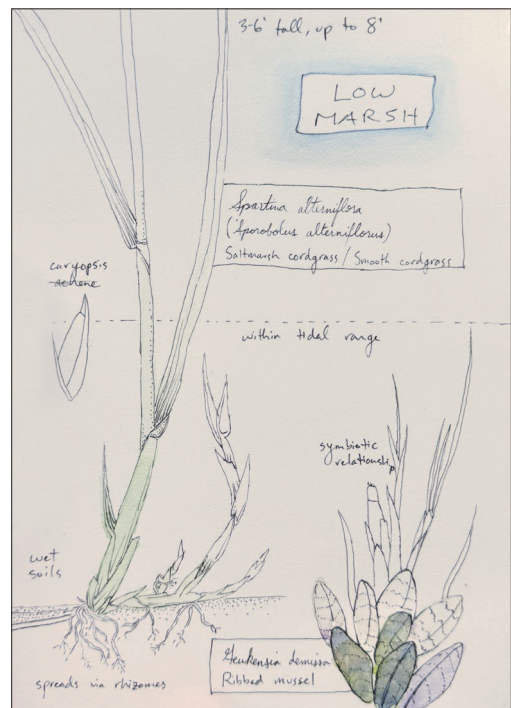 3-6' tall, up to 8'
LOW
MARSH
Spartina alterniflora
('Sporobolus alterniflorus)
Saltmarsh cordgrass / Smooth cordgrass
caryopsis
achene
within tidal range
symbiotic
relationship
wet
soils
Geukensia demissa
Ribbed mussel
spreads via rhizomes